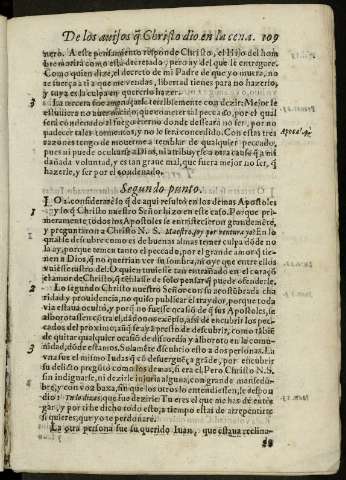 De los auisos q̃ Christo dio en la cena. 109
nero. A este pensamiento responde Christo, el Hijo del hom
bre morirà como està decretado, pero ay del que le entregare.
Como quien dize, el decreto de mi Padre de que yo muera, no
te fuerça a ti a que me vendas, libertad tienes para no hazerlo,
y tuya es la culpa en querello hazer.
3 La tercera fue amenaçarle terriblemente con dezir: Mejor le
estuuiera no auer nacido, que cometer tal pecado, por el qual
serà condenado al fuego eterno donde desseará no ser, por no
padecer tales tormentos, y no le serà concedido. Con estas tres
razones tengo de mouerme a temblar de qualquier pecado,
pues ni puede ocultarse a Dios, ni atribuyrse a otra causa q̃ a mi
dañada voluntad, y es tan graue mal, que fuera mejor no ser, q̃
hazerle, y ser por el condenado.
Segundo punto.
LO 2. considerarè lo q̃ de aqui resultò en los demas Apostoles
y lo q̃ Christo nuestro Señor hizo en este caso. Porque pri-
meramente, todos los Apostoles se entristecieron grandemẽte,
y preguntaron a Christo N. S. Maestro, soy por ventura yo? En lo
qual se descubre como es de buenas almas temer culpa dõde no
la ay, porque tienen tanto el peccado, por el grande amor q̃ tie-
nen a Dios, q̃ no querrian ver su sombra, ni oyr que entre ellos
el amor de Christo, q̃ tẽblasse de solo pensar q̃ puede ofenderle.
2 Lo segundo Christo nuestro Señor con su acostũbrada cha
ridad y prouidencia, no quiso publicar el traydor, porque toda
via estaua oculto, y porq̃ no fuesse ocasiõ de q̃ sus Apostoles, se
alborotassen cõtra el, dãdonos exẽplo, assi de encubrir los pec-
cados del proximo, aũq̃ se aya presto de descubrir, como tãbiẽ
de quitar qualquier ocasiõ de discordia y alboroto en la comu-
3 nidad, dõde estamos. Solamẽte descubrio esto a dos personas. La
vna fue el mismo Iudas q̃ cõ desuerguẽça grãde, por encubrir
su delicto preguntò como los demas, si era el. Pero Christo N. S.
sin indignarse, ni dezirle injuria alguna, con grande mansedũ-
bre, y con voz baxa, sin que los otros lo entendiessen, le respon
dio: Tu lo dizes, que fue dezirle: Tu eres el que me has de entre
gar, y por ti he dicho todo esto, a tiempo estàs de arrepentirte
si quieres, que yo te perdonarè.
La otra persona fue su querido Iuan, que estaua reclina-